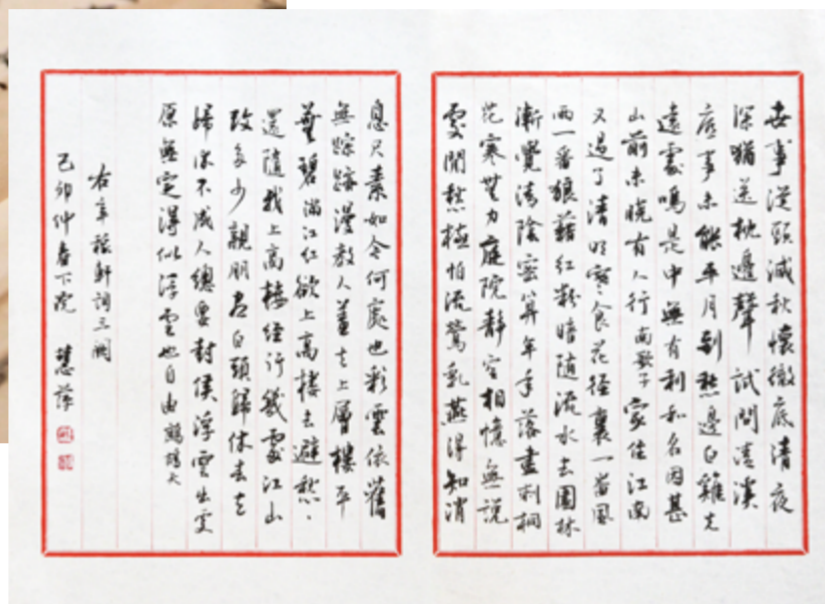 世事從頭減秋懷徹底清夜
深猶送枕邊聲試問清溪
底事未能平月到愁邊白雞先
遠處鳴是中無有利和名因甚
山前未曉有人行南歌子家住江南
又過了清明寒食花徑裏一番風
雨一番狼藉紅粉暗隨流水去園林
漸覺清陰密算年年落盡刺桐
花寒無力庭院靜空相憶無說
處閒愁極怕流鶯乳燕得知消
息尺素如今何處也彩雲依舊
無踪跡漫教人羞去上層樓平
蕪碧滿江紅欲上高樓去避愁、
還隨我上高樓經行幾處江山
改多少親朋盡白頭歸休去去
歸休不成人總要封侯浮雲出處
原無定得似浮雲也自由鷓鴣天
右辛稼軒詞三闋
己卯仲春下浣 慧萍